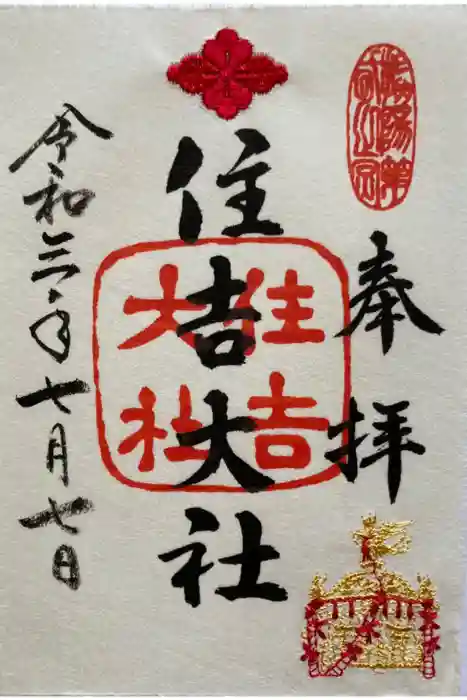 奉拝
住吉大社
住吉大社
令和三年七月七日